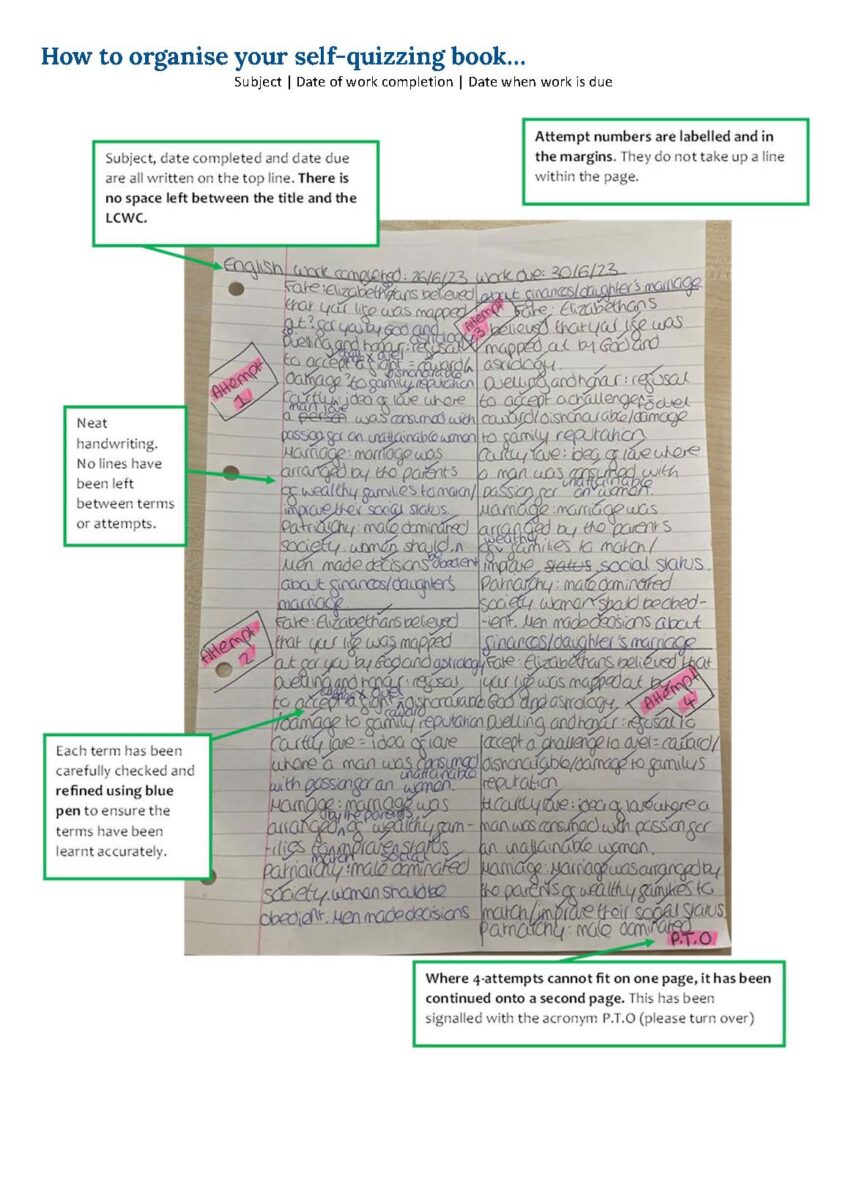 How to organise your self-quizzing book…
Subject | Date of work completion | Date when work is due
Subject, date completed and date due
are all written on the top line. There is
no space left between the title and the
LCWC.
Attempt numbers are labelled and in
the margins. They do not take up a line
within the page.
English work completed: 26/6/23 work due: 30/6/23
Attempt
1
Fate: Elizabethans believed
that your life was mapped
out for you by God and
astrology
Duelling and honour: refusal
to accept a fight = coward/
dishonourable
damage to family reputation
Courtly: idea of love where
man love
a person was consumed with
passion for an unattainable woman
Marriage: marriage was
arranged by the parents
of wealthy families to match/
improve their social status
Patriarchy: male dominated
society. women should
be obedient
Men made decisions
about finances/daughter's
marriage
Attempt
2
Fate: Elizabethans believed
that your life was mapped
out for you by God and astrology
Duelling and honour: refusal
to accept a fight = dishonourable
coward
/damage to family reputation
Courtly love = idea of love
where a man was consumed
unattainable
with passion for an woman.
Marriage: marriage was
by the parents
arranged of wealthy fam-
-ilies to improve status
match social
Patriarchy: male dominated
society. women should be
obedient. Men made decisions
about finances/daughter's marriage
Attempt
3
Fate: Elizabethans
believed that your life was
mapped out by God and
astrology.
Duelling and honour: refusal
to accept a challenge to duel
coward/dishonourable/damage
to family reputation
Courtly love: idea of love where
a man was consumed with
unattainable
passion for an woman.
Marriage: marriage was
arranged by the parents
wealthy
of families to match/
improve status social status.
Patriarchy: male dominated
society. Women should be obed-
-ient. Men made decisions about
finances/daughter's marriage
Attempt
4
Fate: Elizabethans believed that
your life was mapped out by
God and astrology.
Duelling and honour: refusal to
accept a challenge to duel = coward/
dishonourable/damage to family's
reputation
Courtly love: idea of love where a
man was consumed with passion for
an unattainable woman.
Marriage: Marriage was arranged by
the parents of wealthy families to
match/improve their social status
Patriarchy: male dominated
P.T.O
Neat
handwriting.
No lines have
been left
between terms
or attempts.
Each term has been
carefully checked and
refined using blue
pen to ensure the
terms have been
learnt accurately.
Where 4-attempts cannot fit on one page, it has been
continued onto a second page. This has been
signalled with the acronym P.T.O (please turn over)